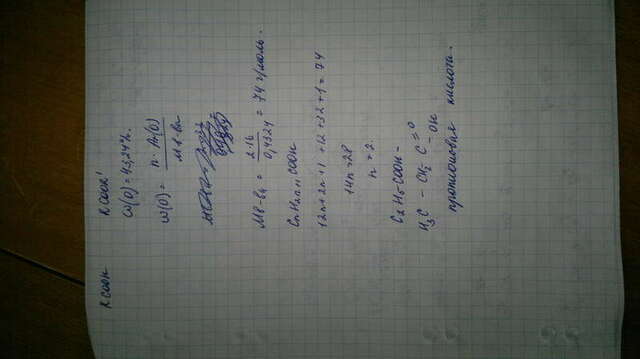 RCOOH RCOOR'
ω(O) = 43,24%.
ω(O) = n · Ar(O) / M в-ва
M в-ва = 2·16 / 0,4324 = 74 г/моль.
CnH2n+1 COOH
12n + 2n + 1 + 12 + 32 + 1 = 74
14n = 28
n = 2.
C2H5COOH -
H3C - CH2 - C = O - OH
пропионовая кислота.